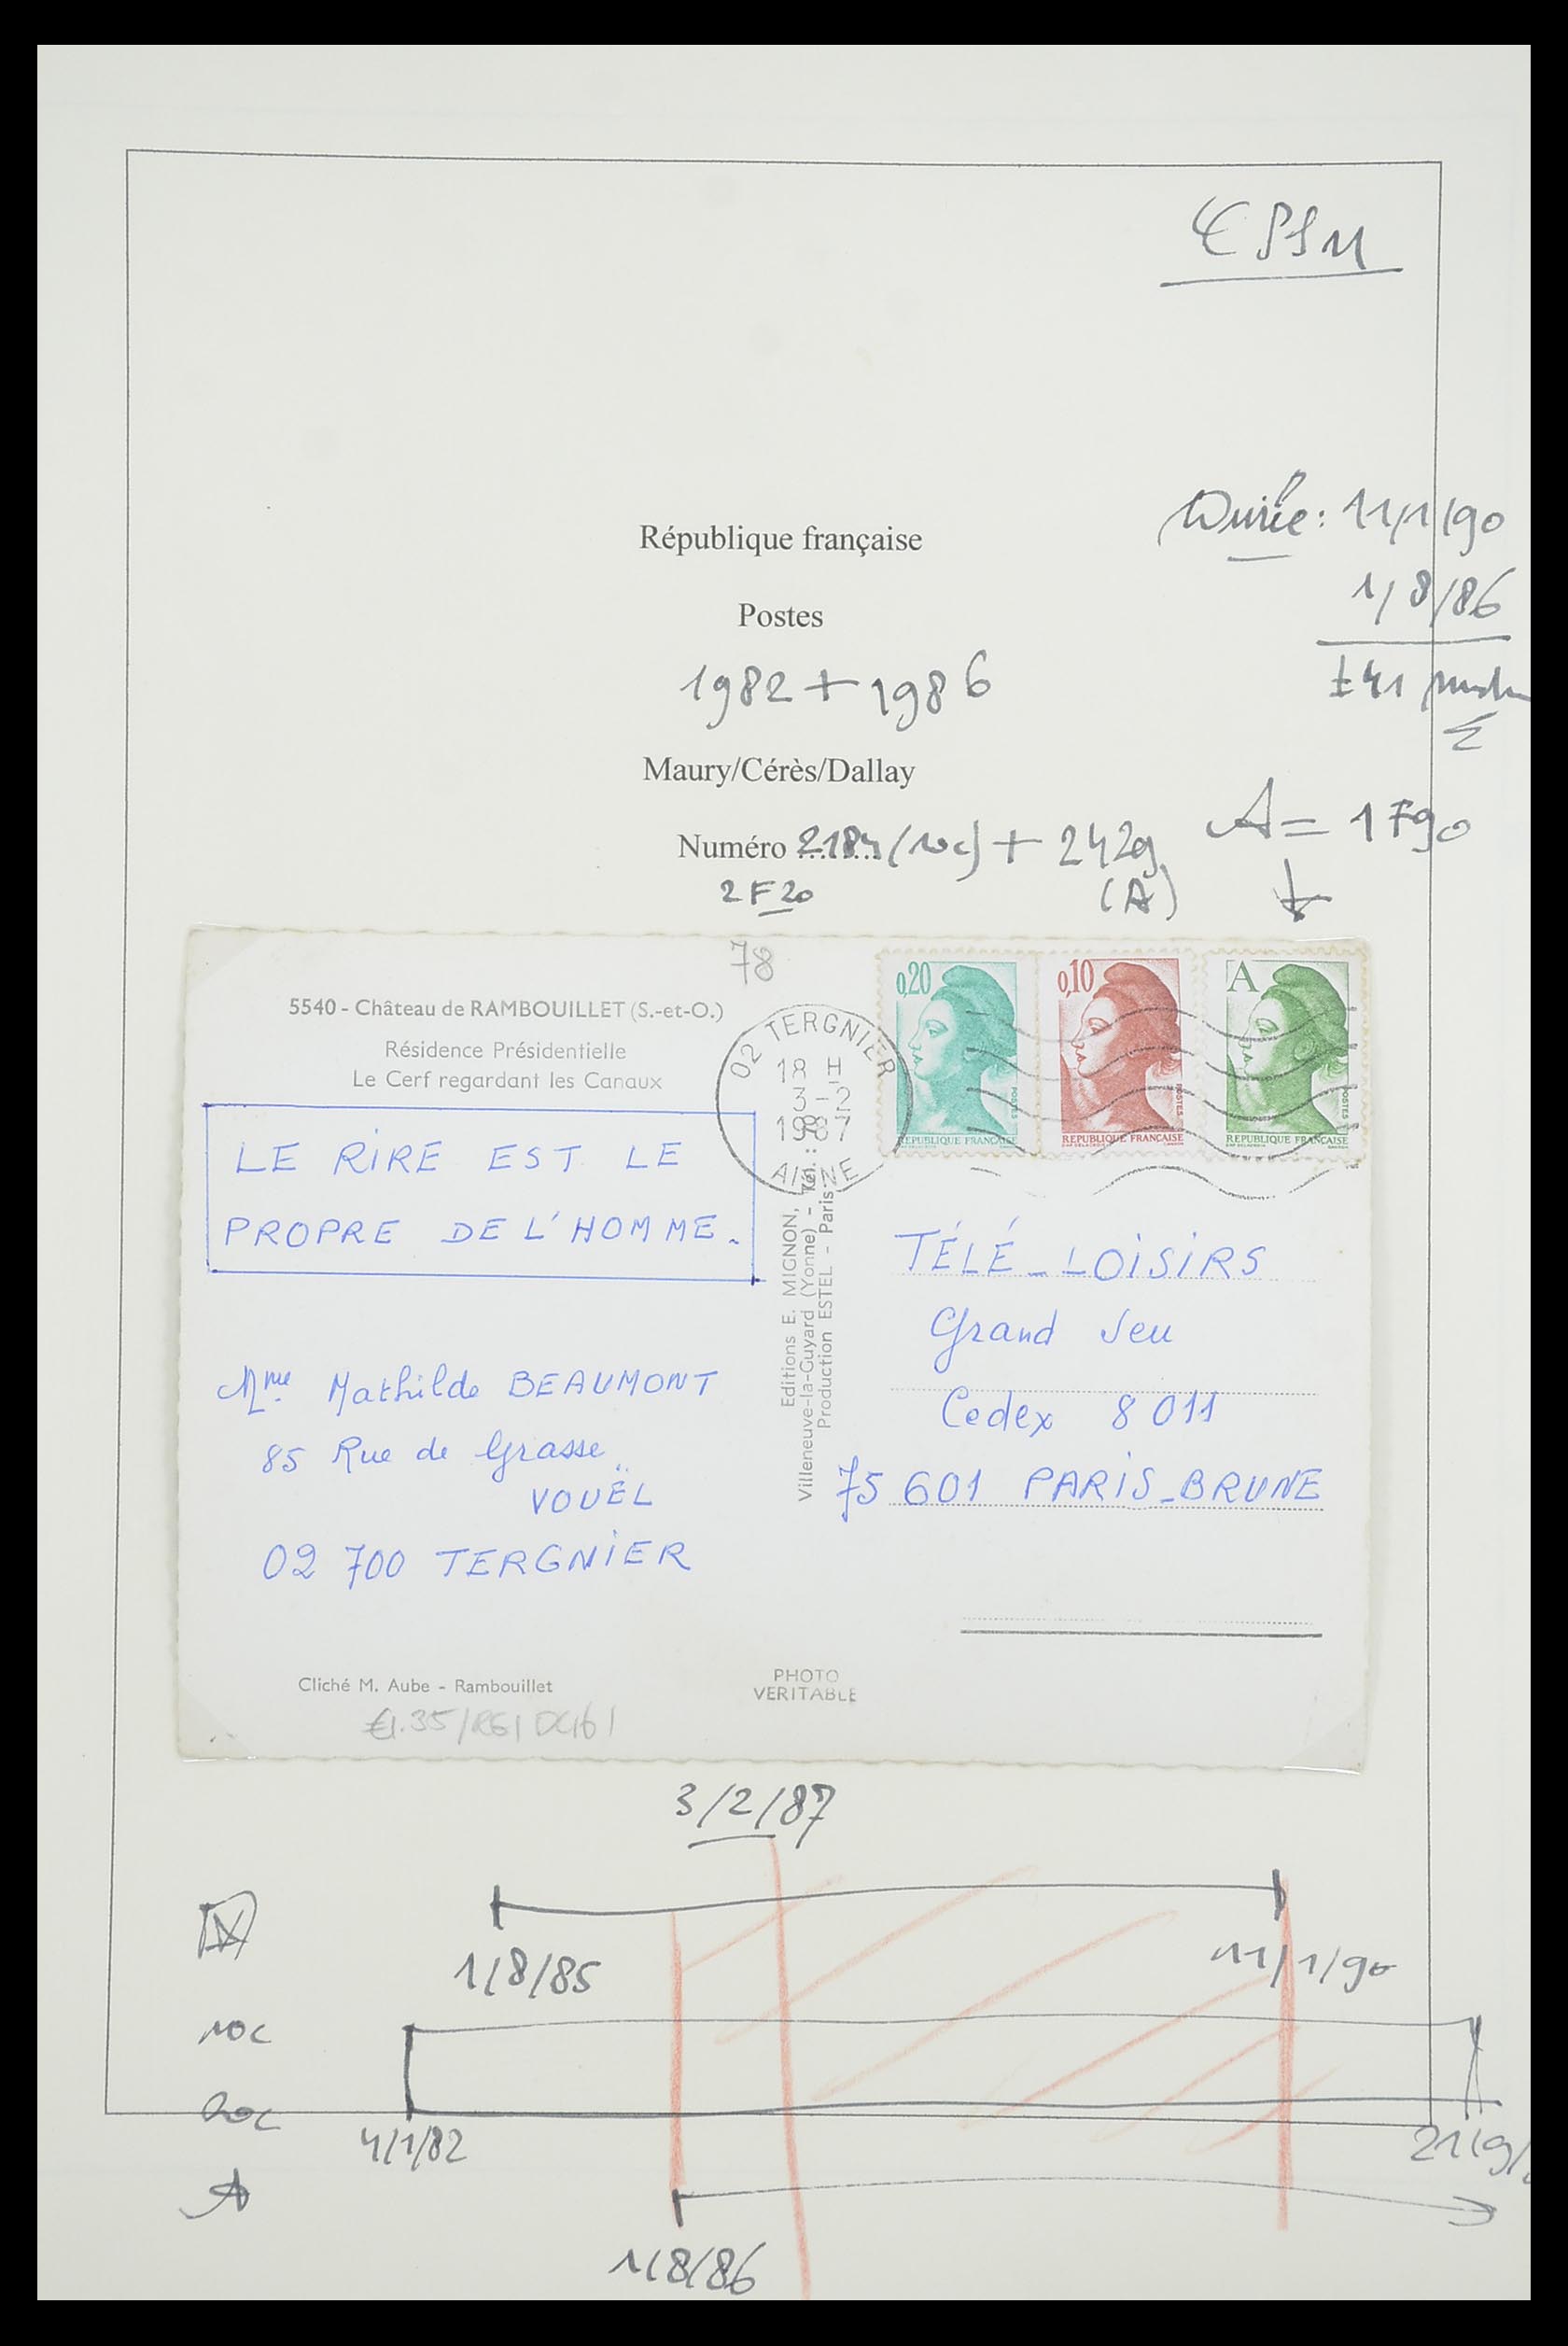 République française
Durée: 11/1/90
Postes
1/8/86
1982 + 1986
± 41
Maury/Cérès/Dallay
A = 1F90
Numéro 2184 (10c) + 2429
2F20
(A)
78
5540 - Château de RAMBOUILLET (S.-et-O.)
Résidence Présidentielle
Le Cerf regardant les Canaux
0,20
POSTES
REPUBLIQUE FRANÇAISE
0,10
POSTES
REPUBLIQUE FRANÇAISE
A
POSTES
REPUBLIQUE FRANÇAISE
02 TERGNIER
18 H
3-2
1987
AISNE
LE RIRE EST LE
PROPRE DE L'HOMME.
Editions E. MIGNON,
Villeneuve-la-Guyard (Yonne) - Tél. :
Production ESTEL - Paris
TÉLÉ-LOISIRS
Grand Jeu
Cedex 8011
75 601 PARIS-BRUNE
Mme Mathilde BEAUMONT
85 Rue de Grasse
VOUËL
02 700 TERGNIER
Cliché M. Aube - Rambouillet
PHOTO
VERITABLE
3/2/87
1/8/85
11/1/90
10c
20c
4/1/82
A
1/8/86